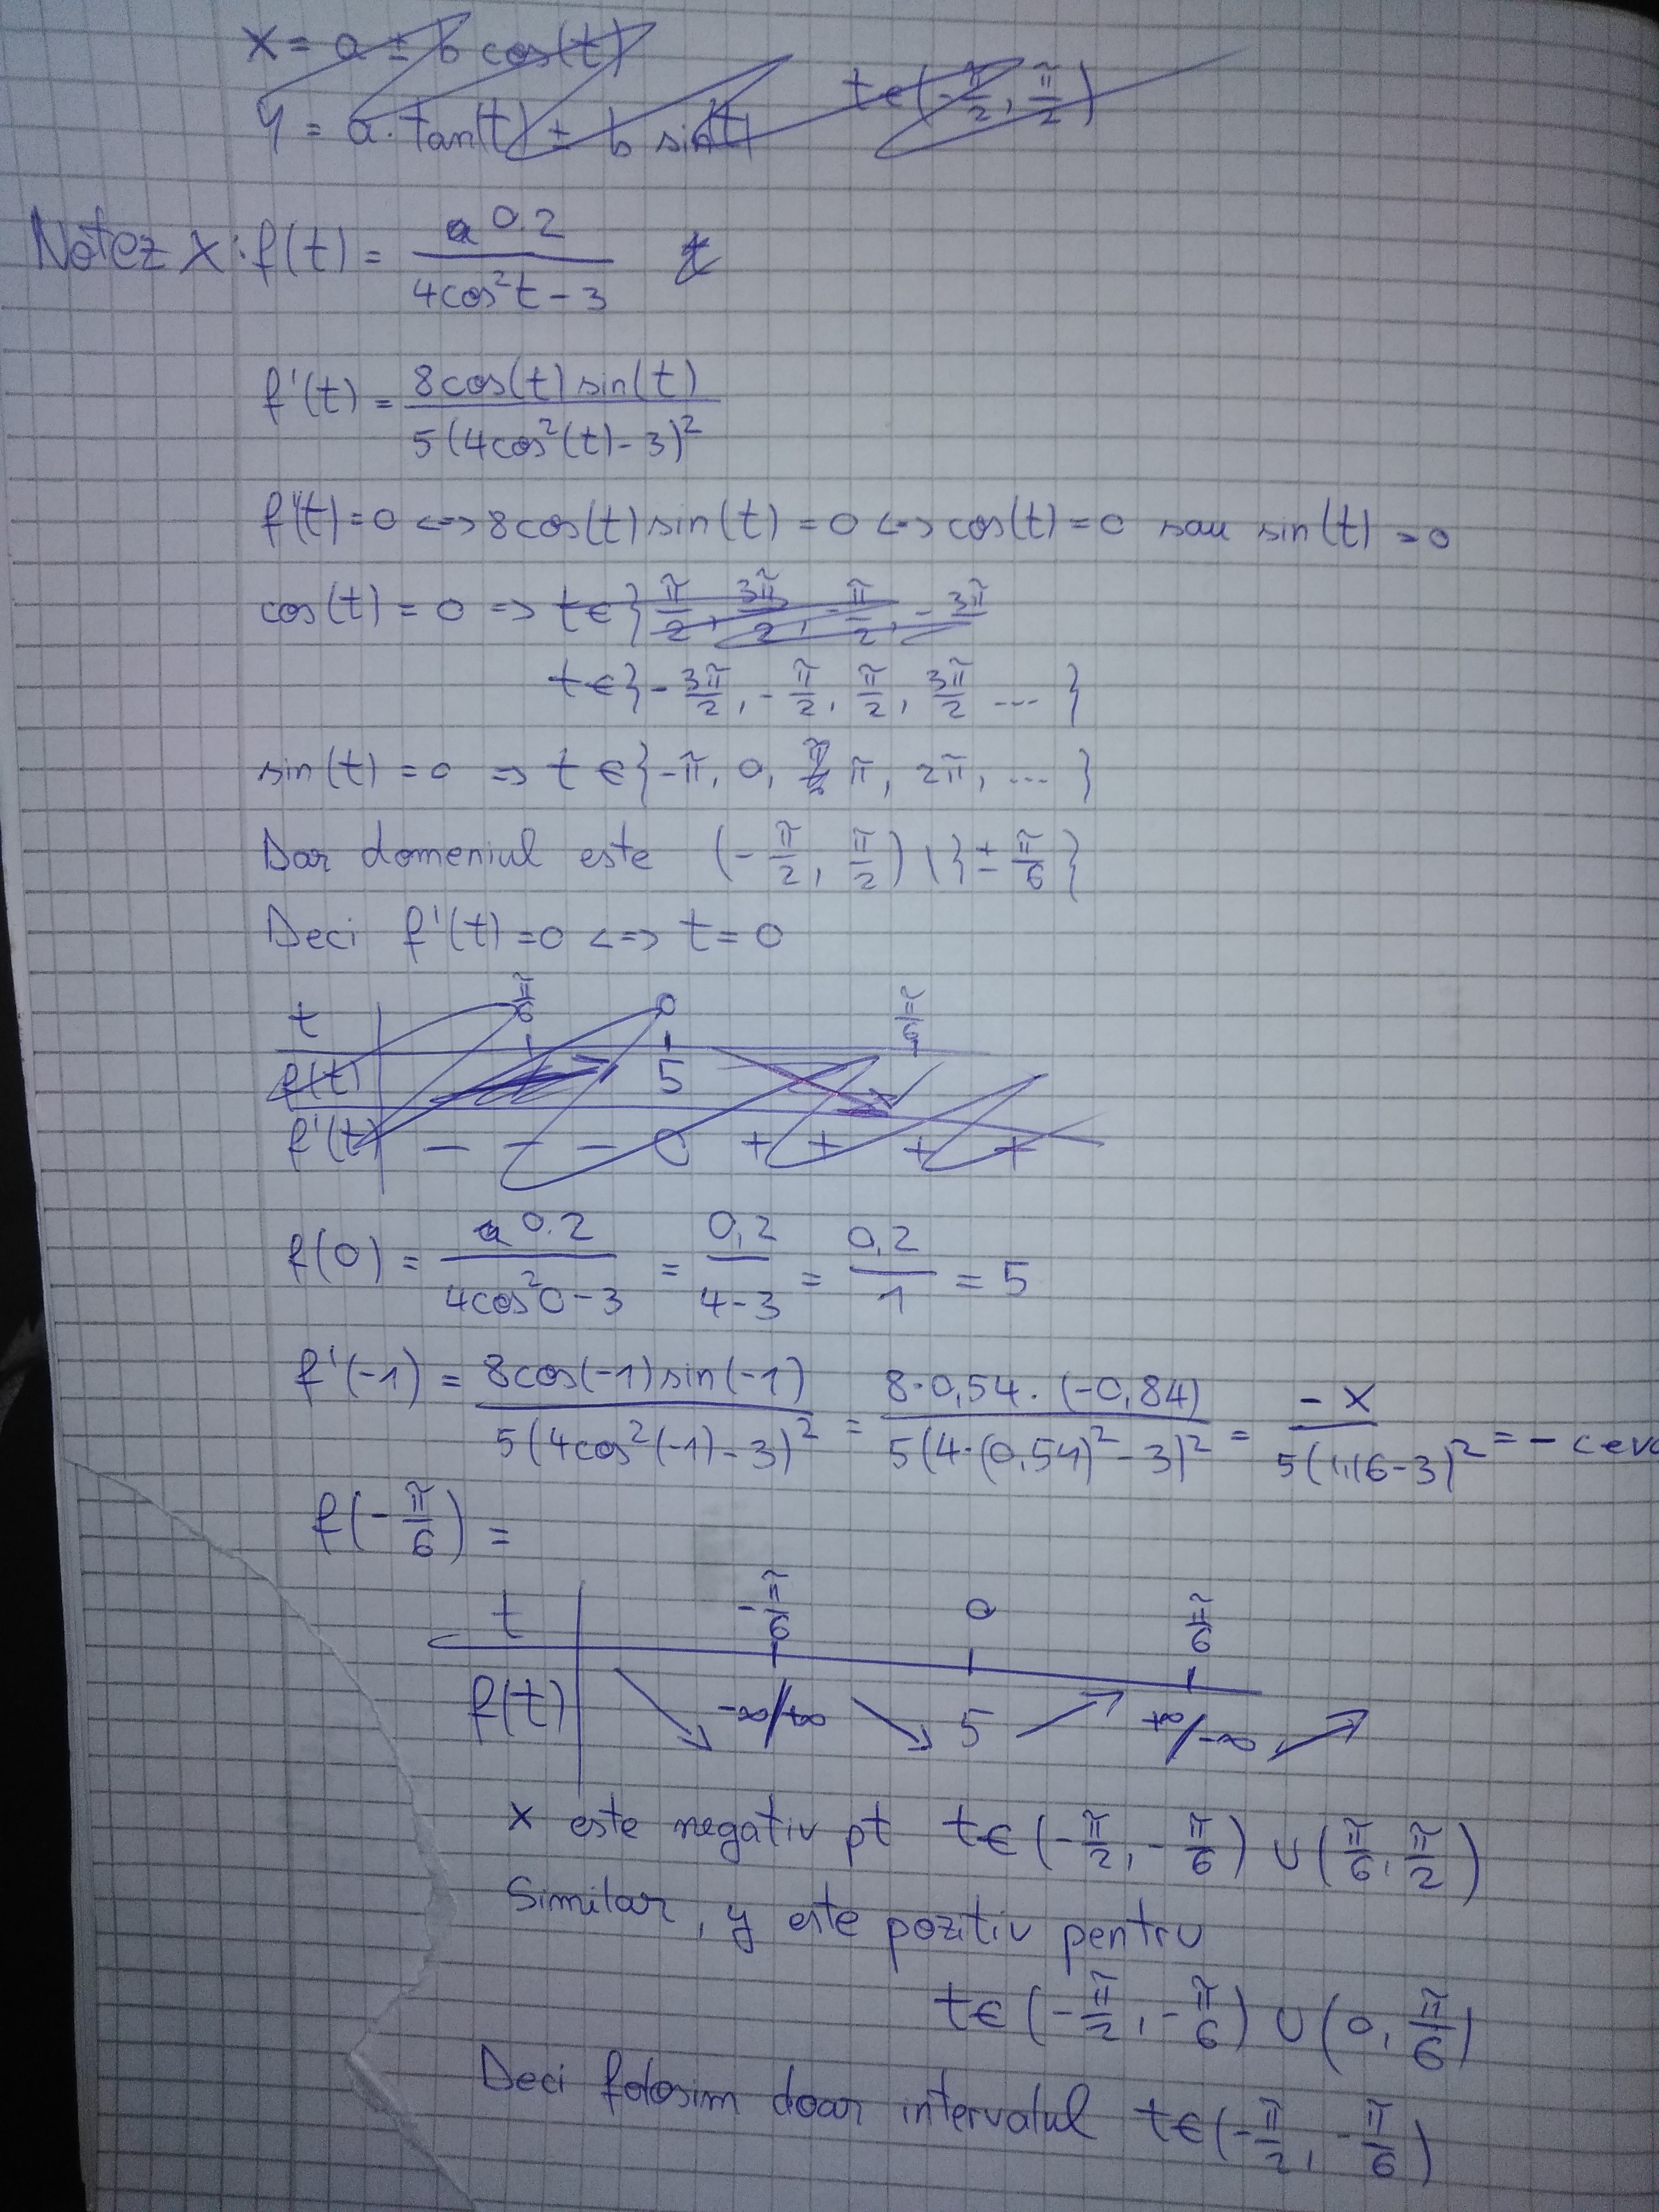 x = a ± b cos(t)
y = a·tan(t) ± b sin(t)   t∈(-π/2, π/2)
Notez x: f(t) = 0.2 / (4cos²t - 3)
f'(t) = 8cos(t) sin(t) / 5(4cos²(t) - 3)²
f'(t) = 0 <=> 8cos(t) sin(t) = 0 <=> cos(t) = 0 sau sin(t) = 0
cos(t) = 0 => t∈{π/2, 3π/2, -π/2, -3π/2
t∈{-3π/2, -π/2, π/2, 3π/2 ... }
sin(t) = 0 => t∈{-π, 0, π, 2π, ... }
Dar domeniul este (-π/2, π/2) \ {±π/6}
Deci f'(t) = 0 <=> t = 0
t   π/6   0   π/6
f(t)   5
f'(t)   - - - 0 + + + +
f(0) = 0.2 / (4cos²0 - 3) = 0,2 / (4-3) = 0,2 / 1 = 5
f'(-1) = 8cos(-1) sin(-1) / 5(4cos²(-1) - 3)² = 8·0,54·(-0,84) / 5(4·(0,54)² - 3)² = -x / 5(1,16-3)² = -
f(-π/6) =
t   -π/6   0   π/6
f(t)   ↘   -∞/+∞   ↘   5   ↗   +∞/-∞   ↗
x este negativ pt t∈(-π/2, -π/6) ∪ (π/6, π/2)
Similar, y este pozitiv pentru
t∈(-π/2, -π/6) ∪ (0, π/6)
Deci folosim doar intervalul t∈(-π/2, -π/6)